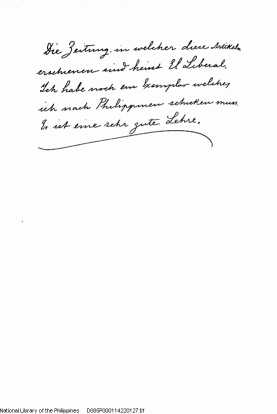 Die Zeitung in welcher diese Artikeln
erschienen sind heisst El Liberal.
Ich habe noch ein Exemplar welches
ich nach Philippinen schicken muss.
Es ist eine sehr gute Lehre.
National Library of the Philippines D885P000114220127.tif